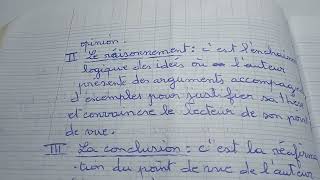 opinion.
II Le raisonnement : c'est l'enchaîne
logique des idées où l'auteur
présente des arguments accompagné
d'exemples pour justifier sa thèse
et convaincre le lecteur de son point
de vue.
III La conclusion : c'est la réaffirma
tion du point de vue de l'auteur